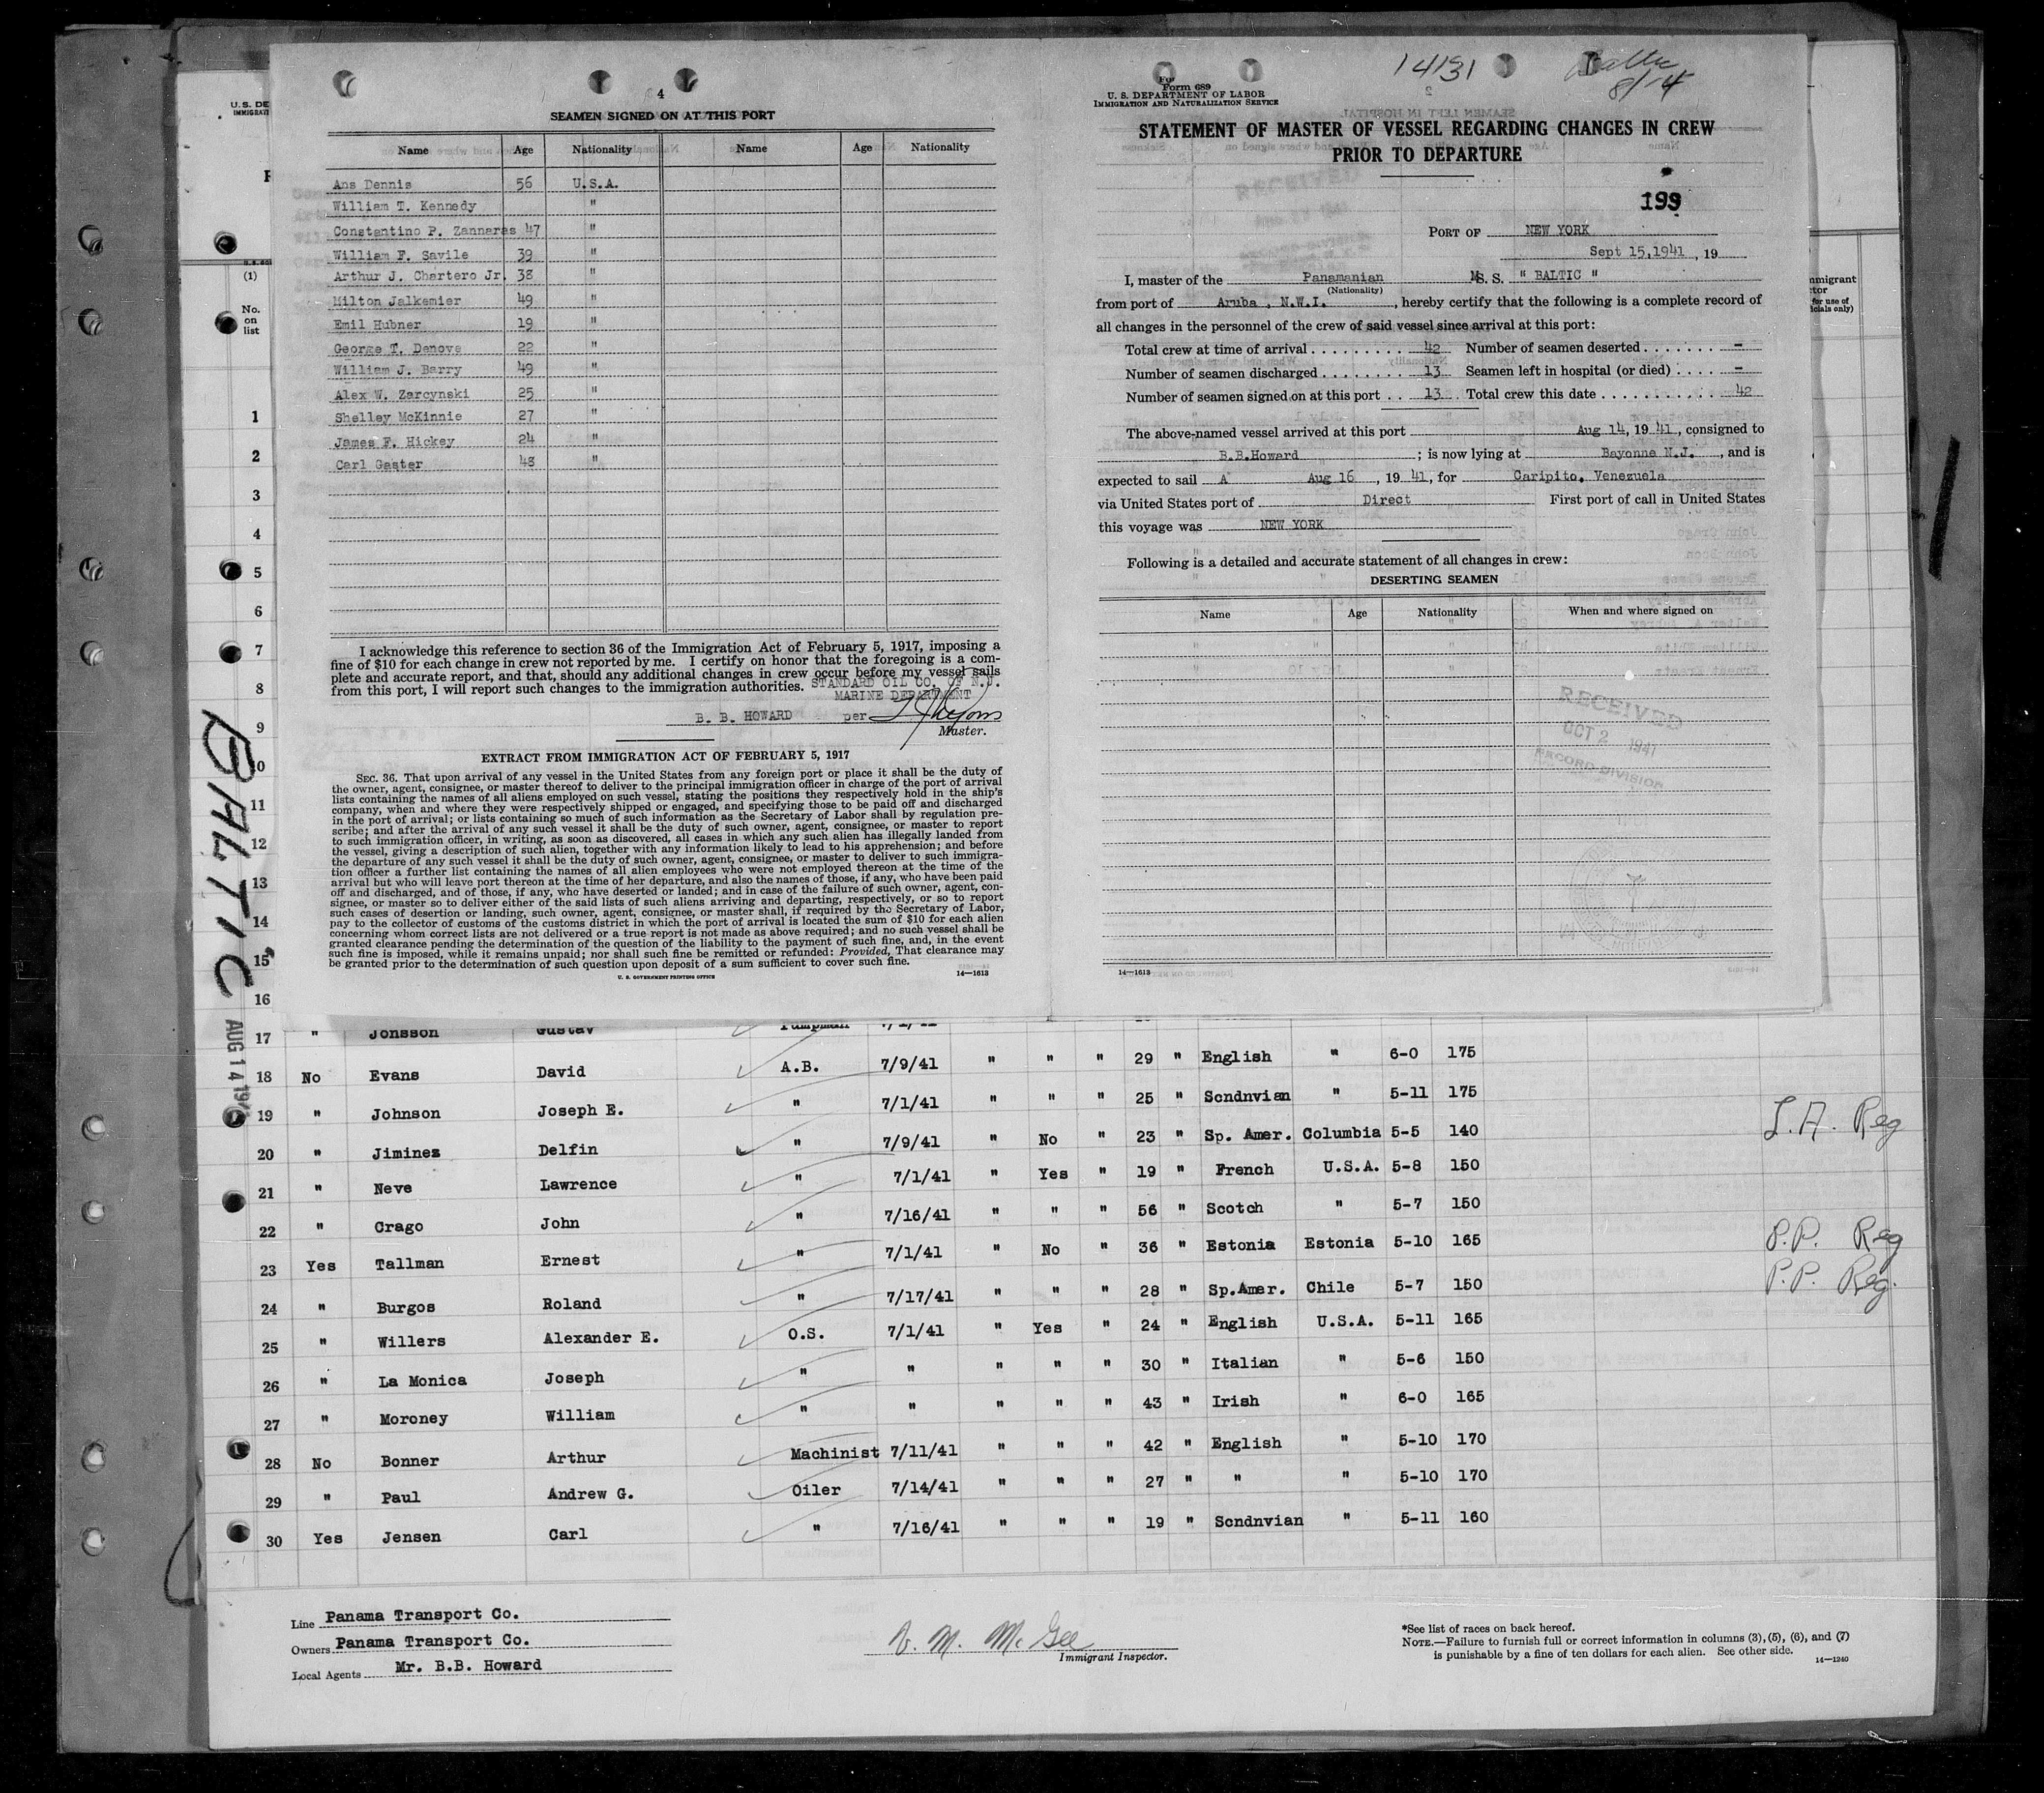 4
SEAMEN SIGNED ON AT THIS PORT
Name Age Nationality Name Age Nationality
Ans Dennis 56 U.S.A.
William T. Kennedy "
Constantino P. Zannaras 47 "
William F. Savile 39 "
Arthur J. Chartero Jr. 38 "
Milton Jalkemier 49 "
Emil Hubner 19 "
George T. Denove 22 "
William J. Barry 49 "
Alex W. Zarcynski 25 "
Shelley McKinnie 27 "
James F. Hickey 24 "
Carl Gaster 48 "
I acknowledge this reference to section 36 of the Immigration Act of February 5, 1917, imposing a
fine of $10 for each change in crew not reported by me. I certify on honor that the foregoing is a com-
plete and accurate report, and that, should any additional changes in crew occur before my vessel sails
from this port, I will report such changes to the immigration authorities. STANDARD OIL CO. OF N.J.
MARINE DEPARTMENT
B. B. HOWARD per
Master.
EXTRACT FROM IMMIGRATION ACT OF FEBRUARY 5, 1917
SEC. 36. That upon arrival of any vessel in the United States from any foreign port or place it shall be the duty of
the owner, agent, consignee, or master thereof to deliver to the principal immigration officer in charge of the port of arrival
lists containing the names of all aliens employed on such vessel, stating the positions they respectively hold in the ship's
company, when and where they were respectively shipped or engaged, and specifying those to be paid off and discharged
in the port of arrival; or lists containing so much of such information as the Secretary of Labor shall by regulation pre-
scribe; and after the arrival of any such vessel it shall be the duty of such owner, agent, consignee, or master to report
to such immigration officer, in writing, as soon as discovered, all cases in which any such alien has illegally landed from
the vessel, giving a description of such alien, together with any information likely to lead to his apprehension; and before
the departure of any such vessel it shall be the duty of such owner, agent, consignee, or master to deliver to such immigra-
tion officer a further list containing the names of all alien employees who were not employed thereon at the time of the
arrival but who will leave port thereon at the time of her departure, and also the names of those, if any, who have been paid
off and discharged, and of those, if any, who have deserted or landed; and in case of the failure of such owner, agent, con-
signee, or master so to deliver either of the said lists of such aliens arriving and departing, respectively, or so to report
such cases of desertion or landing, such owner, agent, consignee, or master shall, if required by the Secretary of Labor,
pay to the collector of customs of the customs district in which the port of arrival is located the sum of $10 for each alien
concerning whom correct lists are not delivered or a true report is not made as above required; and no such vessel shall be
granted clearance pending the determination of the question of the liability to the payment of such fine, and, in the event
such fine is imposed, while it remains unpaid; nor shall such fine be remitted or refunded: Provided, That clearance may
be granted prior to the determination of such question upon deposit of a sum sufficient to cover such fine.
U. S. GOVERNMENT PRINTING OFFICE 14—1613
14131 Baltic
8/14
Form 689
U. S. DEPARTMENT OF LABOR
IMMIGRATION AND NATURALIZATION SERVICE
STATEMENT OF MASTER OF VESSEL REGARDING CHANGES IN CREW
PRIOR TO DEPARTURE
199
PORT OF NEW YORK
Sept 15,1941, 19
I, master of the Panamanian M S. S. " BALTIC "
(Nationality)
from port of Aruba, N.W.I., hereby certify that the following is a complete record of
all changes in the personnel of the crew of said vessel since arrival at this port:
Total crew at time of arrival 42 Number of seamen deserted -
Number of seamen discharged 13 Seamen left in hospital (or died) -
Number of seamen signed on at this port 13 Total crew this date 42
The above-named vessel arrived at this port Aug 14, 1941, consigned to
B.B.Howard; is now lying at Bayonne N.J., and is
expected to sail A Aug 16, 1941, for Caripito, Venezuela
via United States port of Direct First port of call in United States
this voyage was NEW YORK
Following is a detailed and accurate statement of all changes in crew:
DESERTING SEAMEN
Name Age Nationality When and where signed on
RECEIVED
OCT 2 1941
RECORD DIVISION
14—1613
U.S. DE
IMMIGRATI
(1)
No.
on
list
mmigrant
ctor
for use of
icials only)
1
2
3
4
5
6
7
8
9
10
11
12
13
14
15
16
BALTIC
AUG 14 194
17 " Jonsson Gustav Pumpman 7/1/41
18 No Evans David A.B. 7/9/41 " " " 29 " English " 6-0 175
19 " Johnson Joseph E. " 7/1/41 " " " 25 " Scndnvian " 5-11 175
20 " Jiminez Delfin " 7/9/41 " No " 23 " Sp. Amer. Columbia 5-5 140 L.A. Reg
21 " Neve Lawrence " 7/1/41 " Yes " 19 " French U.S.A. 5-8 150
22 " Crago John " 7/16/41 " " " 56 " Scotch " 5-7 150
23 Yes Tallman Ernest " 7/1/41 " No " 36 " Estonia Estonia 5-10 165 P.P. Reg
24 " Burgos Roland " 7/17/41 " " " 28 " Sp.Amer. Chile 5-7 150 P.P. Reg.
25 " Willers Alexander E. O.S. 7/1/41 " Yes " 24 " English U.S.A. 5-11 165
26 " La Monica Joseph " " " " " 30 " Italian " 5-6 150
27 " Moroney William " " " " " 43 " Irish " 6-0 165
28 No Bonner Arthur Machinist 7/11/41 " " " 42 " English " 5-10 170
29 " Paul Andrew G. Oiler 7/14/41 " " " 27 " " " 5-10 170
30 Yes Jensen Carl " 7/16/41 " " " 19 " Scndnvian " 5-11 160
Line Panama Transport Co.
Owners Panama Transport Co.
Local Agents Mr. B.B. Howard
V. M. McGee
Immigrant Inspector.
*See list of races on back hereof.
NOTE.—Failure to furnish full or correct information in columns (3), (5), (6), and (7)
is punishable by a fine of ten dollars for each alien. See other side.
14—1240